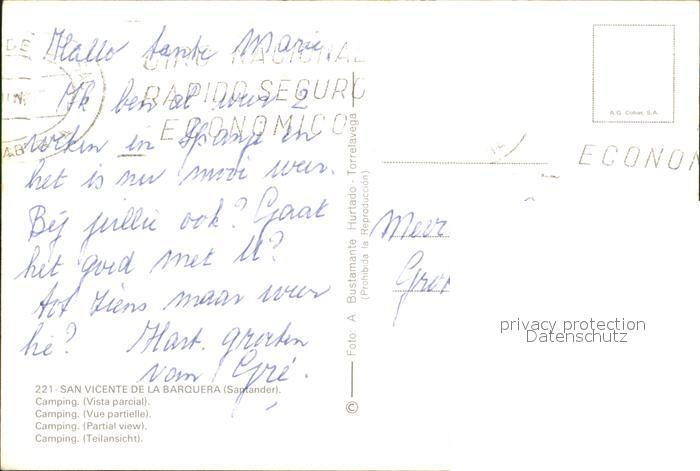 Hallo tante Marie,
Ik ben al weer 2
weken in Spanje en
het is nu mooi weer.
Bij jullie ook? Gaat
het goed met U?
Tot ziens maar weer
hè? Hart. groeten
van Gré.
221 - SAN VICENTE DE LA BARQUERA (Santander).
Camping. (Vista parcial).
Camping. (Vue partielle).
Camping. (Partial view).
Camping. (Teilansicht).
GIRO NACIONAL
RAPIDO SEGURO
ECONOMICO
© Foto: A. Bustamante Hurtado - Torrelavega
(Prohibida la Reproducción)
A.G. Cobas, S.A.
ECONOM
Mevr
privacy protection
Datenschutz